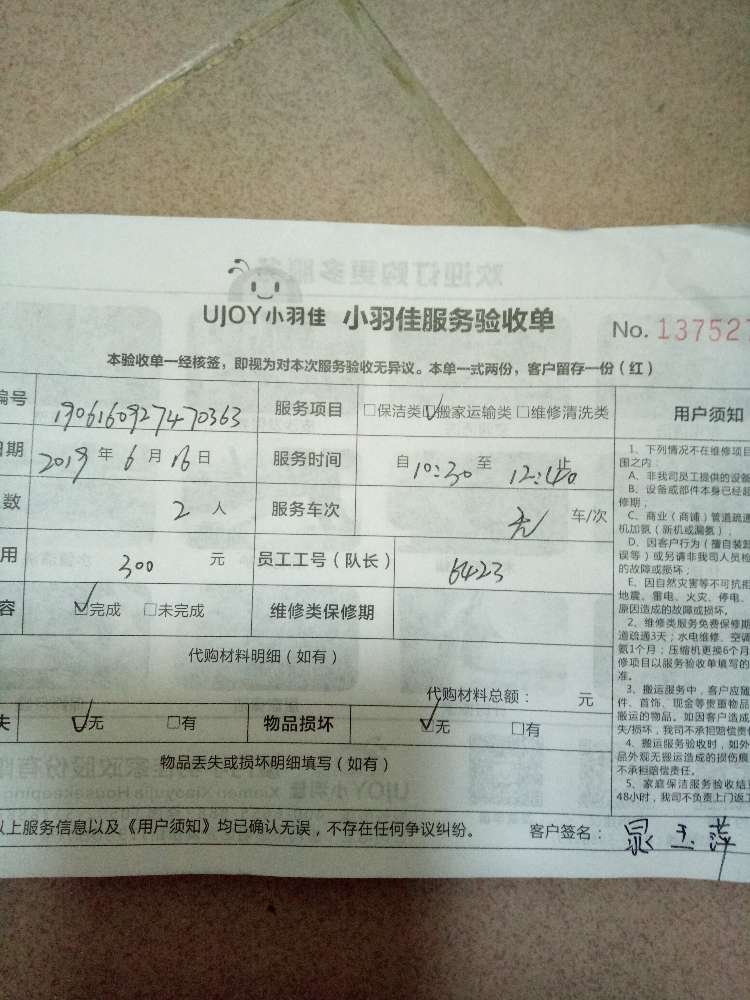 UJOY小羽佳 小羽佳服务验收单 No. 137527
本验收单一经核签，即视为对本次服务验收无异议。本单一式两份，客户留存一份（红）
编号 190616092747036​3 服务项目 □保洁类 ☑搬家运输类 □维修清洗类 用户须知
日期 2019 年 6 月 16 日 服务时间 自 10:30 至 12:40 止
数 2 人 服务车次 无 车/次
用 300 元 员工工号（队长） 6423
容 ☑完成 □未完成 维修类保修期
代购材料明细（如有）
代购材料总额： 元
失 ☑无 □有 物品损坏 ☑无 □有
物品丢失或损坏明细填写（如有）
以上服务信息以及《用户须知》均已确认无误，不存在任何争议纠纷。 客户签名： 玉萍
1、下列情况不在维修项目
围之内：
A、非我司员工提供的设备
B、设备或部件本身已经超
修期；
C、商业（商铺）管道疏通
机加氨（新机或漏氨）；
D、因客户行为（擅自装卸
误等）或另请非我司人员检
的故障或损坏；
E、因自然灾害等不可抗拒
地震、雷电、火灾、停电、
原因造成的故障或损坏。
2、维修类服务免费保修期
道疏通3天；水电维修、空调
氨1个月；压缩机更换6个月
修项目以服务验收单填写的
准。
3、搬运服务中，客户应随
件、首饰、现金等贵重物品
搬运的物品。如因客户造成
失/损坏，我司不承担赔偿责任
4、搬运服务验收时，如外
品外观无搬运造成的损伤痕
不承担赔偿责任。
5、家庭保洁服务验收结
48小时，我司不负责上门返工